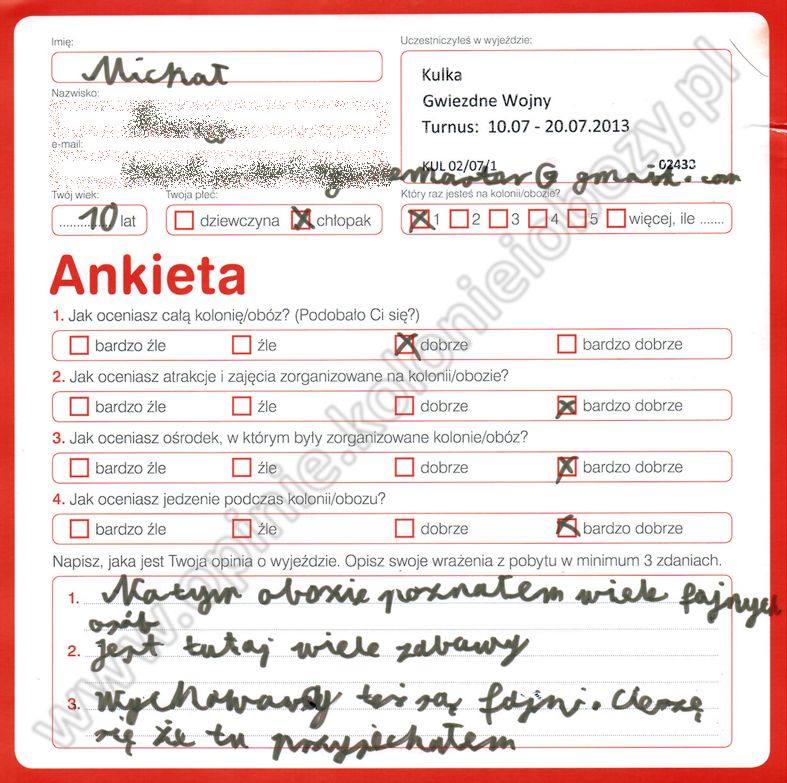 Imię:
Michał
Uczestniczyłeś w wyjeździe:
Kulka
Gwiezdne Wojny
Turnus: 10.07 - 20.07.2013
KUL 02/07/1 - 02433
Nazwisko:
e-mail:
gmail.com
Twój wiek:
10 lat
Twoja płeć:
dziewczyna chłopak
Który raz jesteś na kolonii/obozie?
1 2 3 4 5 więcej, ile .......
Ankieta
1. Jak oceniasz całą kolonię/obóz? (Podobało Ci się?)
bardzo źle źle dobrze bardzo dobrze
2. Jak oceniasz atrakcje i zajęcia zorganizowane na kolonii/obozie?
bardzo źle źle dobrze bardzo dobrze
3. Jak oceniasz ośrodek, w którym były zorganizowane kolonie/obóz?
bardzo źle źle dobrze bardzo dobrze
4. Jak oceniasz jedzenie podczas kolonii/obozu?
bardzo źle źle dobrze bardzo dobrze
Napisz, jaka jest Twoja opinia o wyjeździe. Opisz swoje wrażenia z pobytu w minimum 3 zdaniach.
1. Natym obozie poznałem wiele fajnych
osób
2. jest tutaj wiele zabawy
3. Wychowawcy też są fajni. Cieszę
się że tu przyjechałem
www.opinie.kolonieiobozy.pl